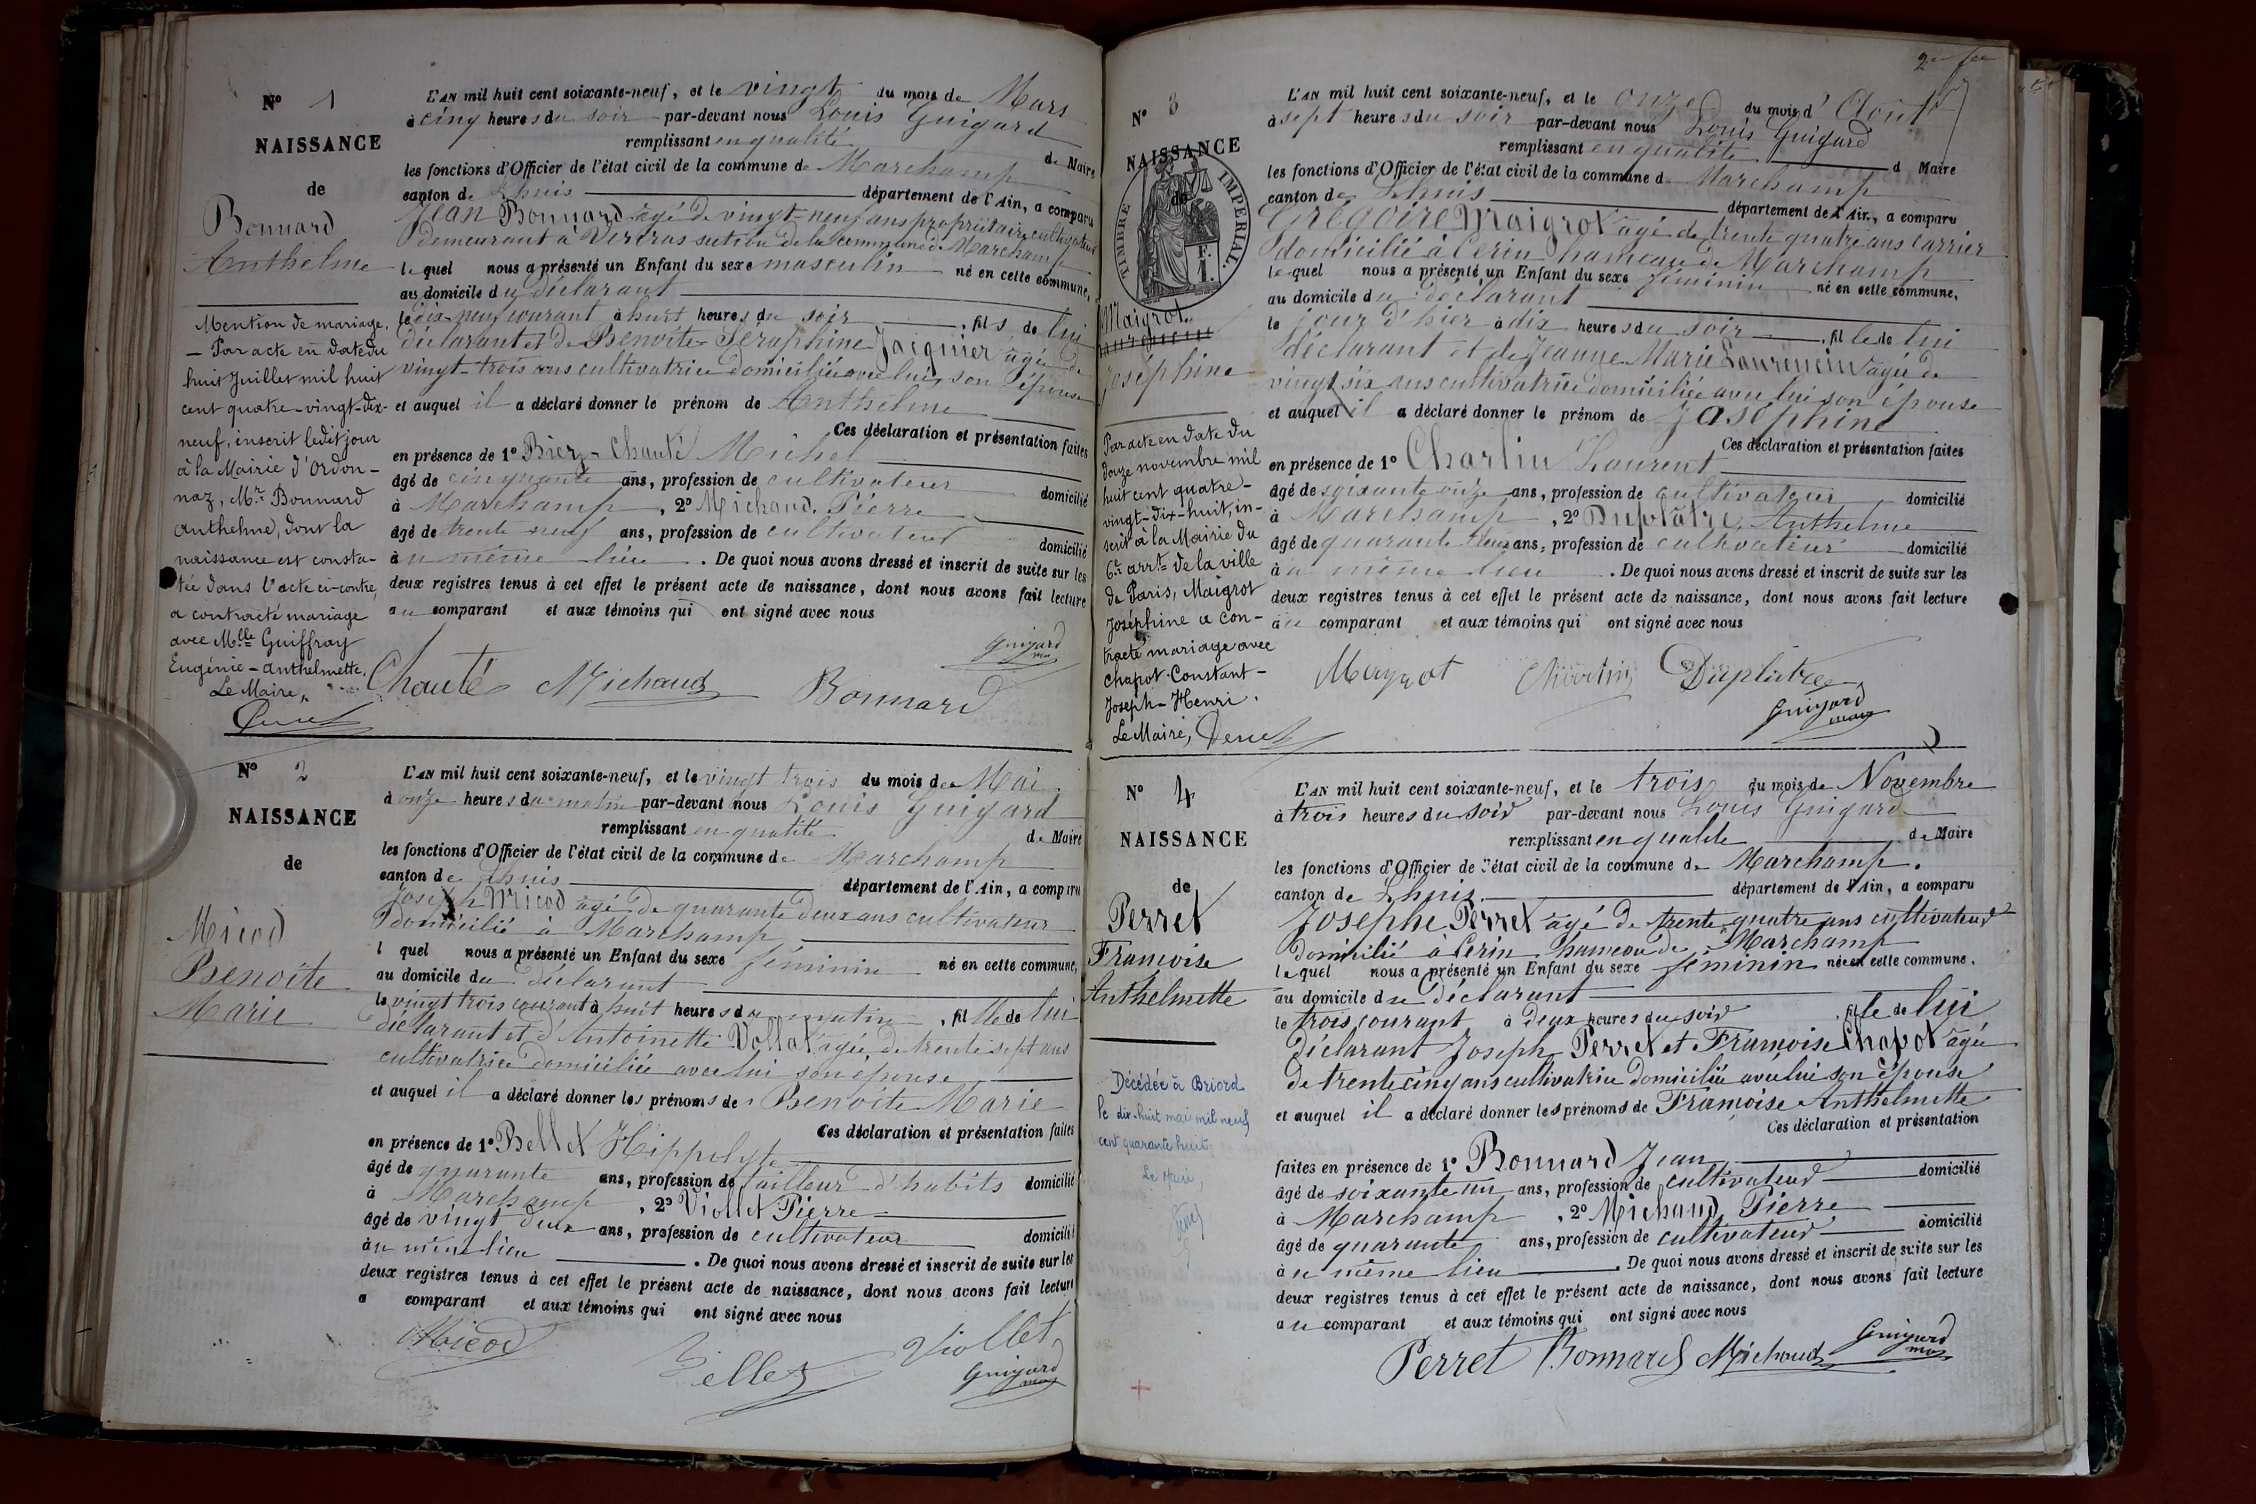 N° 1
NAISSANCE
de
Bonnard
Anthelme
Mention de mariage.
— Par acte en date du
huit Juillet mil huit
cent quatre-vingt-dix-
neuf, inscrit ledit jour
à la Mairie d'Ordon-
naz, Mr. Bonnard
Anthelme, dont la
naissance est consta-
tée dans l'acte ci-contre,
a contracté mariage
avec Mlle Guiffray
Eugénie-Anthelmette.
Le Maire,
L'AN mil huit cent soixante-neuf, et le vingt du mois de Mars
à cinq heures du soir par-devant nous Louis Guigard
remplissant en qualité de Maire
les fonctions d'Officier de l'état civil de la commune de Marchamp
canton de Lhuis département de l'Ain, a comparu
Jean Bonnard âgé de vingt-neuf ans propriétaire cultivateur
demeurant à Vercras section de la commune de Marchamp
lequel nous a présenté un Enfant du sexe masculin né en cette commune,
au domicile du déclarant
le dix-neuf courant à huit heures du soir, fils de lui
déclarant et de Benoîte Séraphine Jacquier âgée de
vingt-trois ans cultivatrice domiciliée avec lui, son épouse
et auquel il a déclaré donner le prénom de Anthelme
Ces déclaration et présentation faites
en présence de 1° Biery-Chanté Michel
âgé de cinquante ans, profession de cultivateur domicilié
à Marchamp, 2° Michaud Pierre
âgé de trente neuf ans, profession de cultivateur domicilié
au même lieu. De quoi nous avons dressé et inscrit de suite sur les
deux registres tenus à cet effet le présent acte de naissance, dont nous avons fait lecture
au comparant et aux témoins qui ont signé avec nous
Guigard
Chanté Michaud Bonnard
N° 2
NAISSANCE
de
Micod
Benoîte
Marie
L'AN mil huit cent soixante-neuf, et le vingt trois du mois de Mai
à onze heures du matin par-devant nous Louis Guigard
remplissant en qualité de Maire
les fonctions d'Officier de l'état civil de la commune de Marchamp
canton de Lhuis département de l'Ain, a comparu
Joseph Micod âgé de quarante deux ans cultivateur
domicilié à Marchamp
l quel nous a présenté un Enfant du sexe féminin né en cette commune,
au domicile du déclarant
le vingt trois courant à huit heures du matin, fille de lui
déclarant et d'Antoinette Vollat âgée de trente sept ans
cultivatrice domiciliée avec lui son épouse
et auquel il a déclaré donner les prénoms de Benoîte Marie
Ces déclaration et présentation faites
en présence de 1° Bellet Hippolyte
âgé de quarante ans, profession de tailleur d'habits domicilié
à Marchamp, 2° Viollet Pierre
âgé de vingt deux ans, profession de cultivateur domicilié
au même lieu. De quoi nous avons dressé et inscrit de suite sur les
deux registres tenus à cet effet le présent acte de naissance, dont nous avons fait lecture
a comparant et aux témoins qui ont signé avec nous
Micod Bellet Viollet
Guigard
N° 3
NAISSANCE
de
TIMBRE IMPERIAL.
F. 1.
Maigrot
Joséphine
Par acte en date du
douze novembre mil
huit cent quatre-
vingt-dix-huit, in-
scrit à la Mairie du
6e arrt de la ville
de Paris, Maigrot
Joséphine a con-
tracté mariage avec
Chapot-Constant-
Joseph-Henri.
Le Maire,
L'AN mil huit cent soixante-neuf, et le onze du mois d'Août
à sept heures du soir par-devant nous Louis Guigard
remplissant en qualité d Maire
les fonctions d'Officier de l'état civil de la commune d Marchamp
canton de Lhuis département de l'Ain, a comparu
Grégoire Maigrot âgé de trente quatre ans carrier
domicilié à Cerin hameau de Marchamp
lequel nous a présenté un Enfant du sexe féminin né en cette commune,
au domicile du déclarant
le jour d'hier à dix heures du soir, fille de lui
déclarant et de Jeanne Marie Laurencin âgée de
vingt six ans cultivatrice domiciliée avec lui son épouse
et auquel il a déclaré donner le prénom de Joséphine
Ces déclaration et présentation faites
en présence de 1° Charlin Laurent
âgé de soixante onze ans, profession de cultivateur domicilié
à Marchamp, 2° Duplâtre Anthelme
âgé de quarante deux ans, profession de cultivateur domicilié
au même lieu. De quoi nous avons dressé et inscrit de suite sur les
deux registres tenus à cet effet le présent acte de naissance, dont nous avons fait lecture
au comparant et aux témoins qui ont signé avec nous
Maigrot Charlin Duplatre
Guigard
N° 4
NAISSANCE
de
Perret
Françoise
Anthelmette
Décédée à Briord
le dix-huit mai mil neuf
cent quarante huit.
Le Maire,
L'AN mil huit cent soixante-neuf, et le trois du mois de Novembre
à trois heures du soir par-devant nous Louis Guigard
remplissant en qualité de Maire
les fonctions d'Officier de l'état civil de la commune de Marchamp.
canton de Lhuis département de l'Ain, a comparu
Josephe Perret âgé de trente quatre ans cultivateur
domicilié à Cerin hameau de Marchamp
lequel nous a présenté un Enfant du sexe féminin née en cette commune.
au domicile du déclarant
le trois courant à deux heures du soir, fille de lui
déclarant Joseph Perret et Françoise Chapot âgée
de trente cinq ans cultivatrice domiciliée avec lui son épouse
et auquel il a déclaré donner les prénoms de Françoise Anthelmette
Ces déclaration et présentation
faites en présence de 1° Bonnard Jean
âgé de soixante un ans, profession de cultivateur domicilié
à Marchamp, 2° Michaud Pierre
âgé de quarante ans, profession de cultivateur domicilié
au même lieu. De quoi nous avons dressé et inscrit de suite sur les
deux registres tenus à cet effet le présent acte de naissance, dont nous avons fait lecture
au comparant et aux témoins qui ont signé avec nous
Perret Bonnard Michaud Guigard